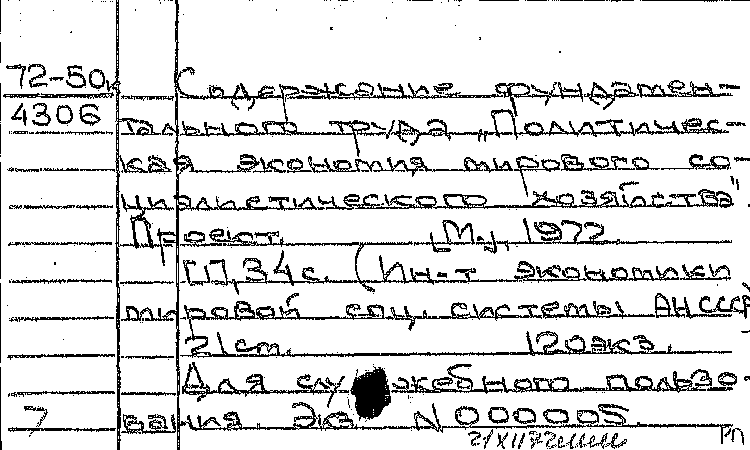 72-50к Содержание фундамен-
4306 тального труда „Политичес-
кая экономия мирового со-
циалистического хозяйства".
Проект. [М.], 1972.
[1], 34 с. (Ин-т экономики
мировой соц. системы АН СССР)
21 cm. 120 экз.
Для служебного пользо-
7 вания. Экз. N 000005.
21/XII 72 РП